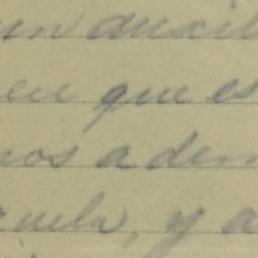 un auxil
en que es
nos a dem
uela, y a